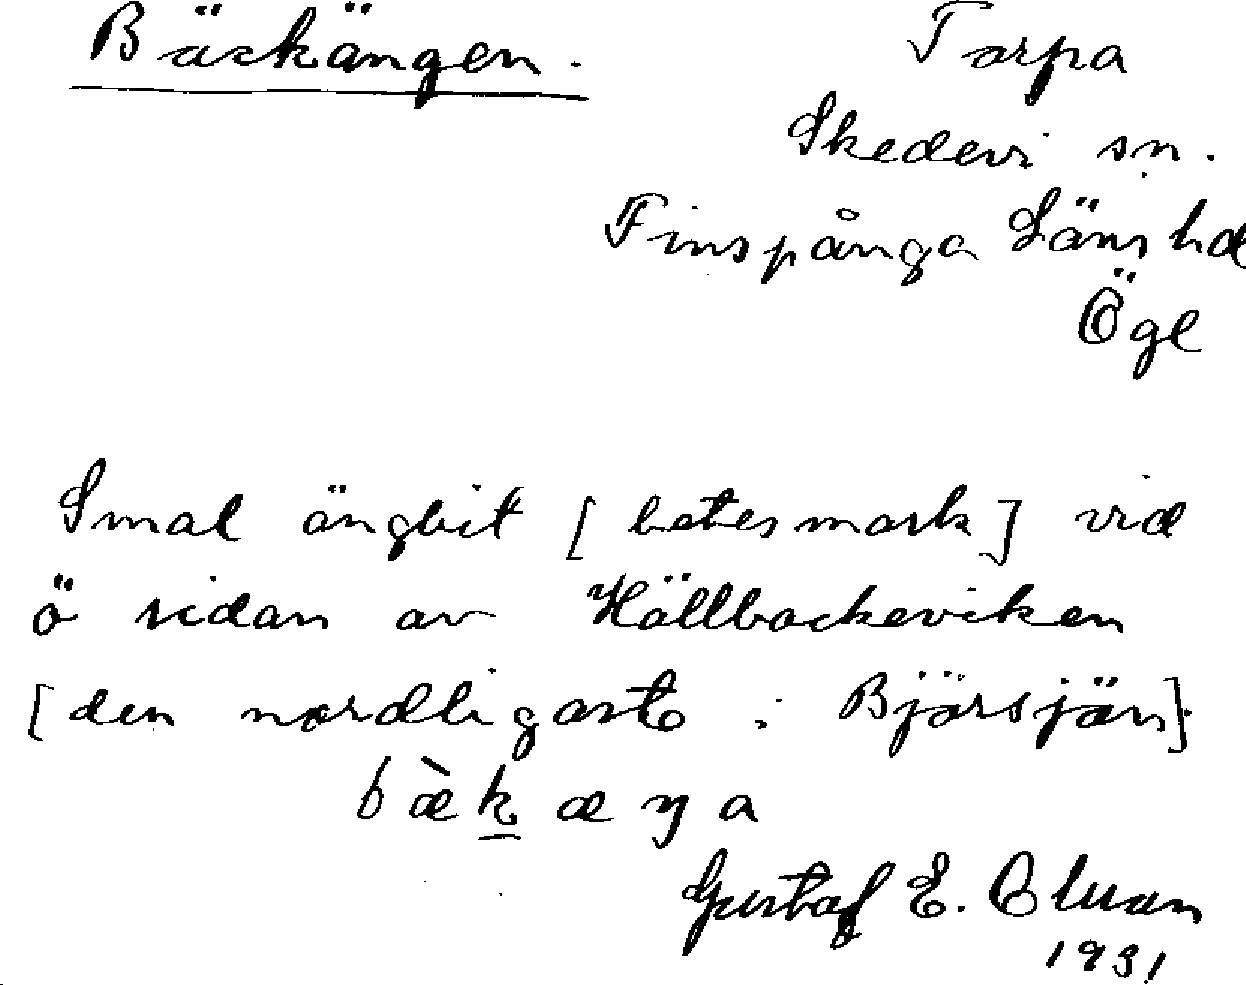 Bäckängen.
Torpa
Skedevi sn.
Finspånga Läns hd
Ögl
Smal ängbit [betesmark] vid
ö sidan av Hällbackeviken
[den nordligaste i Björsjön]
bæ̀k̲æŋa
Gustaf E. Olsson
1931